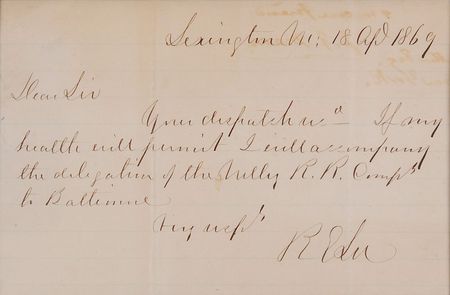 Lexington Va: 18 Apl 1869
Dear Sir
Your dispatch recd If my
health will permit I will accompany
the delegation of the Valley R. R. Compy
to Baltimore
Very respy
R E Lee